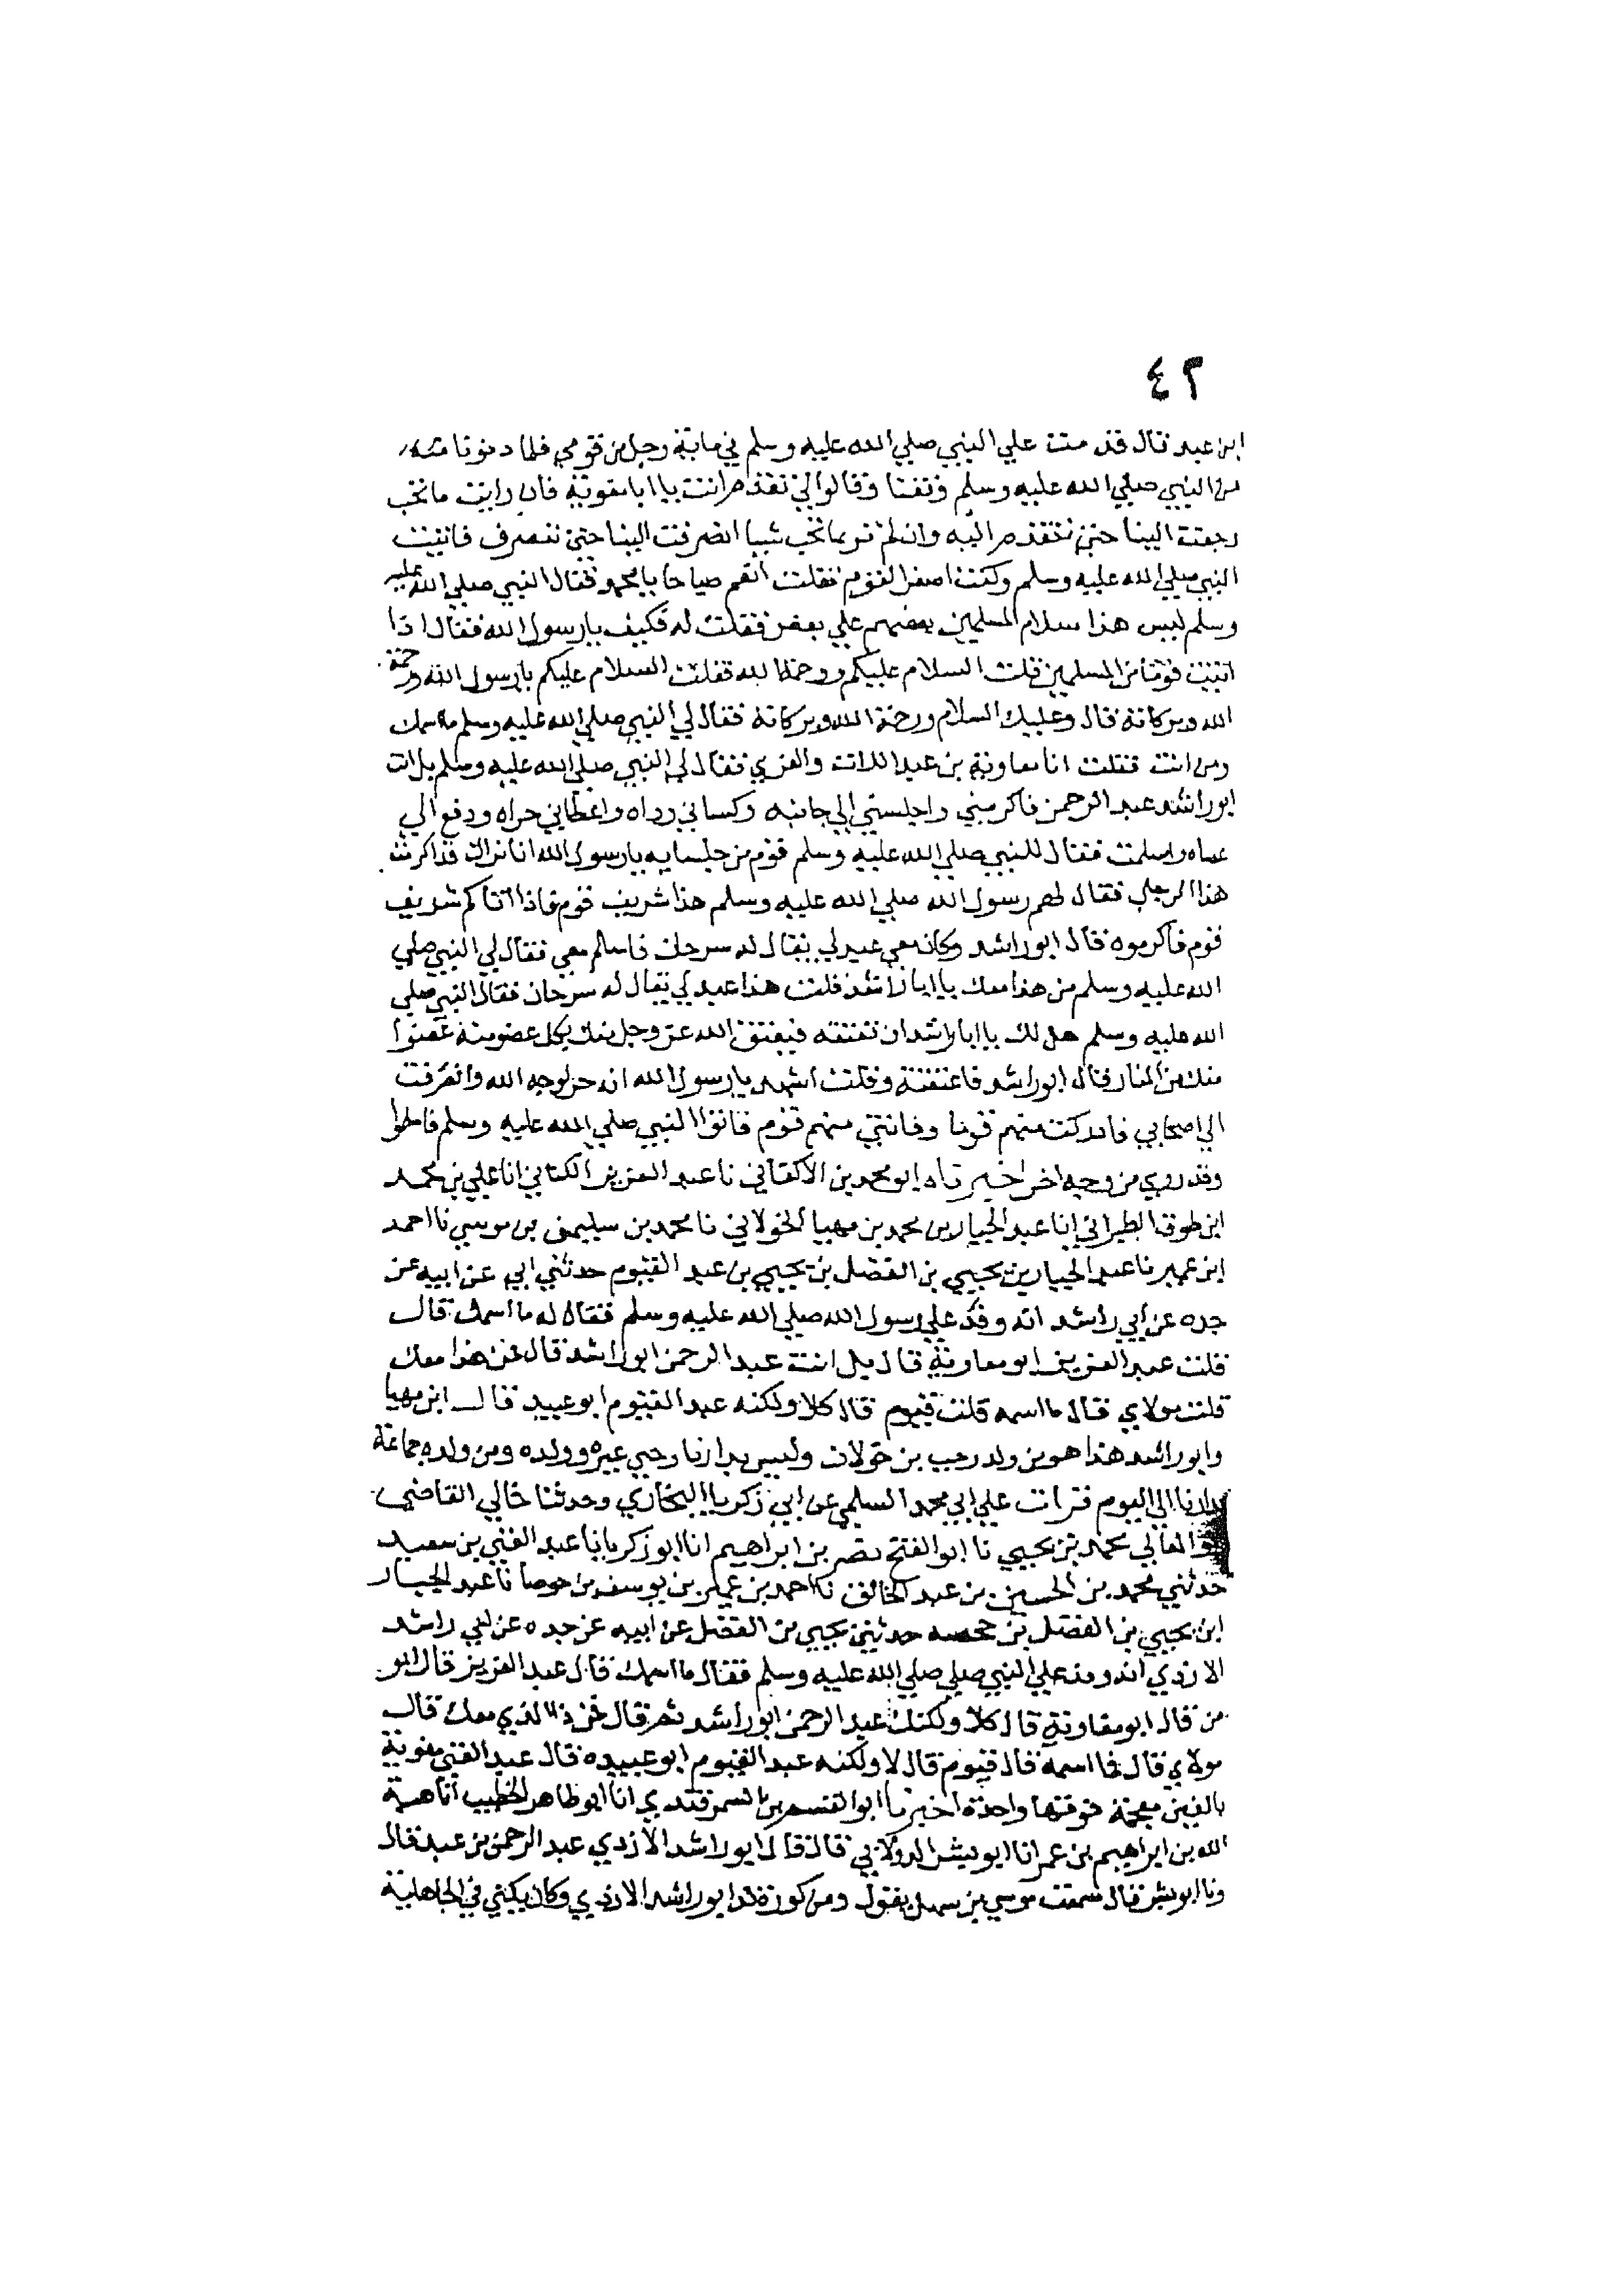 ٤٢
ابن عبد قال قدمت علي النبي صلي الله عليه وسلم في ماية رجل من قومي فلما دنونا منه
من النبي صلي الله عليه وسلم وقفنا وقالوا لي تقدم انت يا ابا معوية فان رايت ما تحب
رجعت الينا حتي نتقدم اليه وان لم تر مما تحب شيا انصرفت الينا حتي ننصرف فاتيت
النبي صلي الله عليه وسلم وكنت اصغر القوم فقلت انعم صباحا يا محمد فقال النبي صلي الله عليه
وسلم ليس هذا سلام المسلمين بعضهم علي بعض فقلت له فكيف يا رسول الله فقال اذا
اتيت قوما من المسلمين قلت السلام عليكم ورحمة الله فقلت السلام عليكم يا رسول الله ورحمة
الله وبركاته قال وعليك السلام ورحمة الله وبركاته فقال لي النبي صلي الله عليه وسلم ما اسمك
ومن انت فقلت انا معاوية بن عبد اللات والعزي فقال لي النبي صلي الله عليه وسلم بل انت
ابو راشد عبد الرحمن فاكرمني واجلسني الي جانبه وكساني رداه واعطاني حداه ودفع الي
عصاه واسلمت فقال للنبي صلي الله عليه وسلم قوم من جلسايه يا رسول الله انا نراك قد اكرمت
هذا الرجل فقال لهم رسول الله صلي الله عليه وسلم هذا شريف قوم فاذا اتاكم شريف
قوم فاكرموه قال ابو راشد وكان معي عبد لي يقال له سرحان فاسلم معي فقال لي النبي صلي
الله عليه وسلم من هذا معك يا ابا راشد فقلت هذا عبد لي يقال له سرحان فقال النبي صلي
الله عليه وسلم هل لك يا ابا راشد ان تعتقه فيعتق الله عز وجل منك بكل عضو منه عضوا
منك من النار فقال ابو راشد فاعتقته وقلت اشهد يا رسول الله انه حر لوجه الله وانصرفت
الي اصحابي فادركت منهم قوما وفاتني منهم قوم فاتوا النبي صلي الله عليه وسلم فاسلموا
وقد روي من وجه اخر اخبرناه ابو محمد بن الاكفاني نا عبد العزيز الكتاني انا علي بن محمد
ابن طوق الطبراني انا عبد الجبار بن محمد بن مهنا الخولاني نا محمد بن سليمن بن موسي نا احمد
ابن عمير نا عبد الجبار بن يحيي بن الفضل بن يحيي بن عبد القيوم حدثني ابي عن ابيه عن
جده عن ابي راشد انه وفد علي رسول الله صلي الله عليه وسلم فقال له ما اسمك قال
قلت عبد العزي ابو معاوية قال بل انت عبد الرحمن ابو راشد قال فمن هذا معك
قلت مولاي قال ما اسمه قلت قيوم قال كلا ولكنه عبد القيوم ابو عبيد قال ابن مهنا
وابو راشد هذا هو من ولد رحب بن خولان وليس بدارنا رحبي غيره وولده ومن ولده جماعة
بدارنا الي اليوم قرات علي ابي محمد السلمي عن ابي زكريا البخاري وحدثنا خالي القاضي
ابو المعالي محمد بن يحيي نا ابو الفتح نصر بن ابراهيم انا ابو زكريا نا عبد الغني بن سعيد
حدثني محمد بن الحسين بن عبد الخالق نا احمد بن عمير بن يوسف بن حوصا نا عبد الجبار
ابن يحيي بن الفضل بن حدثني يحيي بن الفضل عن ابيه عن جده عن ابي راشد
الازدي انه وفد علي النبي صلي صلي الله عليه وسلم فقال ما اسمك قال عبد العزيز قال ابو
من قال ابو معاوية قال كلا ولكنك عبد الرحمن ابو راشد ثم قال فمن ذا الذي معك قال
مولاي قال فما اسمه قال قيوم قال لا ولكنه عبد القيوم ابو عبيده قال عبد الغني مغوية
بالغين معجمة فوقها واحدة اخبرنا ابو القسم بن السمرقندي انا ابو طاهر الخطيب انا هبة
الله بن ابراهيم بن عمر انا ابو بشر الدولابي قال قال ابو راشد الازدي عبد الرحمن بن عبد قال
ونا ابو بشر قال سمعت موسي بن سهل يقول ومن كورة ابو راشد الازدي وكان يكني في الجاهلية